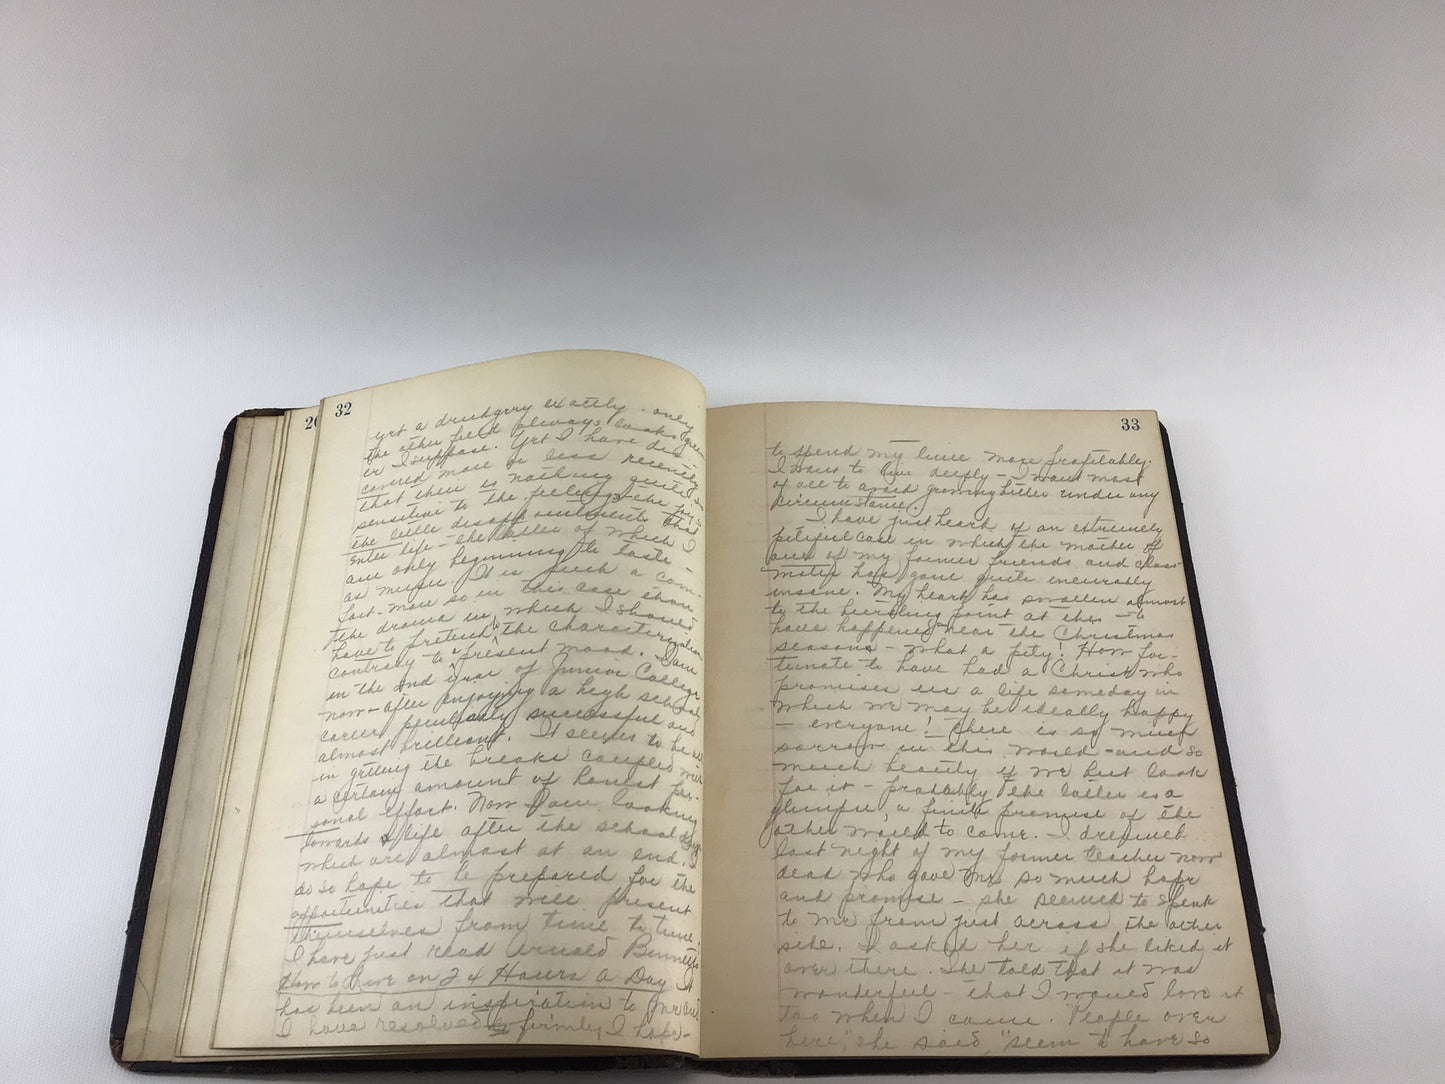 32
yet a drudgery exactly - only
the other field always looks green
er I suppose. Yet I have dis
covered more or less recently
that there is nothing quite so
sensitive to the feelings - the joys
the little disappointments that
enter life - the latter of which I
am only beginning to taste -
as music. It is such a com-
fort - more so in this case than
the drama in which I should
have to pretend the characterization
contrary to present mood. I am
in the 2nd year of Junior College
now - after enjoying a high school
career peculiarly successful and
almost brilliant. It seems to be all
in getting the breaks coupled with
a certain amount of honest per-
sonal effort. Now I am looking
towards life after the school days
which are almost at an end. I
do so hope to be prepared for the
opportunities that will present
themselves from time to time.
I have just read Arnold Bennett's
How to Live on 24 Hours a Day. It
has been an inspiration to me and
I have resolved firmly, I hope -
20
33
to spend my time more profitably.
I want to live deeply - I want most
of all to avoid growing bitter under any
circumstance.
I have just heard of an extremely
pitiful case in which the mother of
one of my former friends and class
mates has gone quite incurably
insane. My heart has swollen almost
to the bursting point at this - to
have happened near the Christmas
season - what a pity! How for-
tunate to have had a Christ who
promises us a life someday in
which we may be ideally happy
- everyone! There is so much
sorrow in this world - and so
much beauty if we but look
for it - probably the latter is a
glimpse, a finite promise of the
other world to come. I dreamed
last night of my former teacher now
dead who gave me so much hope
and promise - she seemed to speak
to me from just across the other
side. I asked her if she liked it
over there. She told that it was
wonderful - that I would love it
too when I came. People over
here," she said, "seem to have so